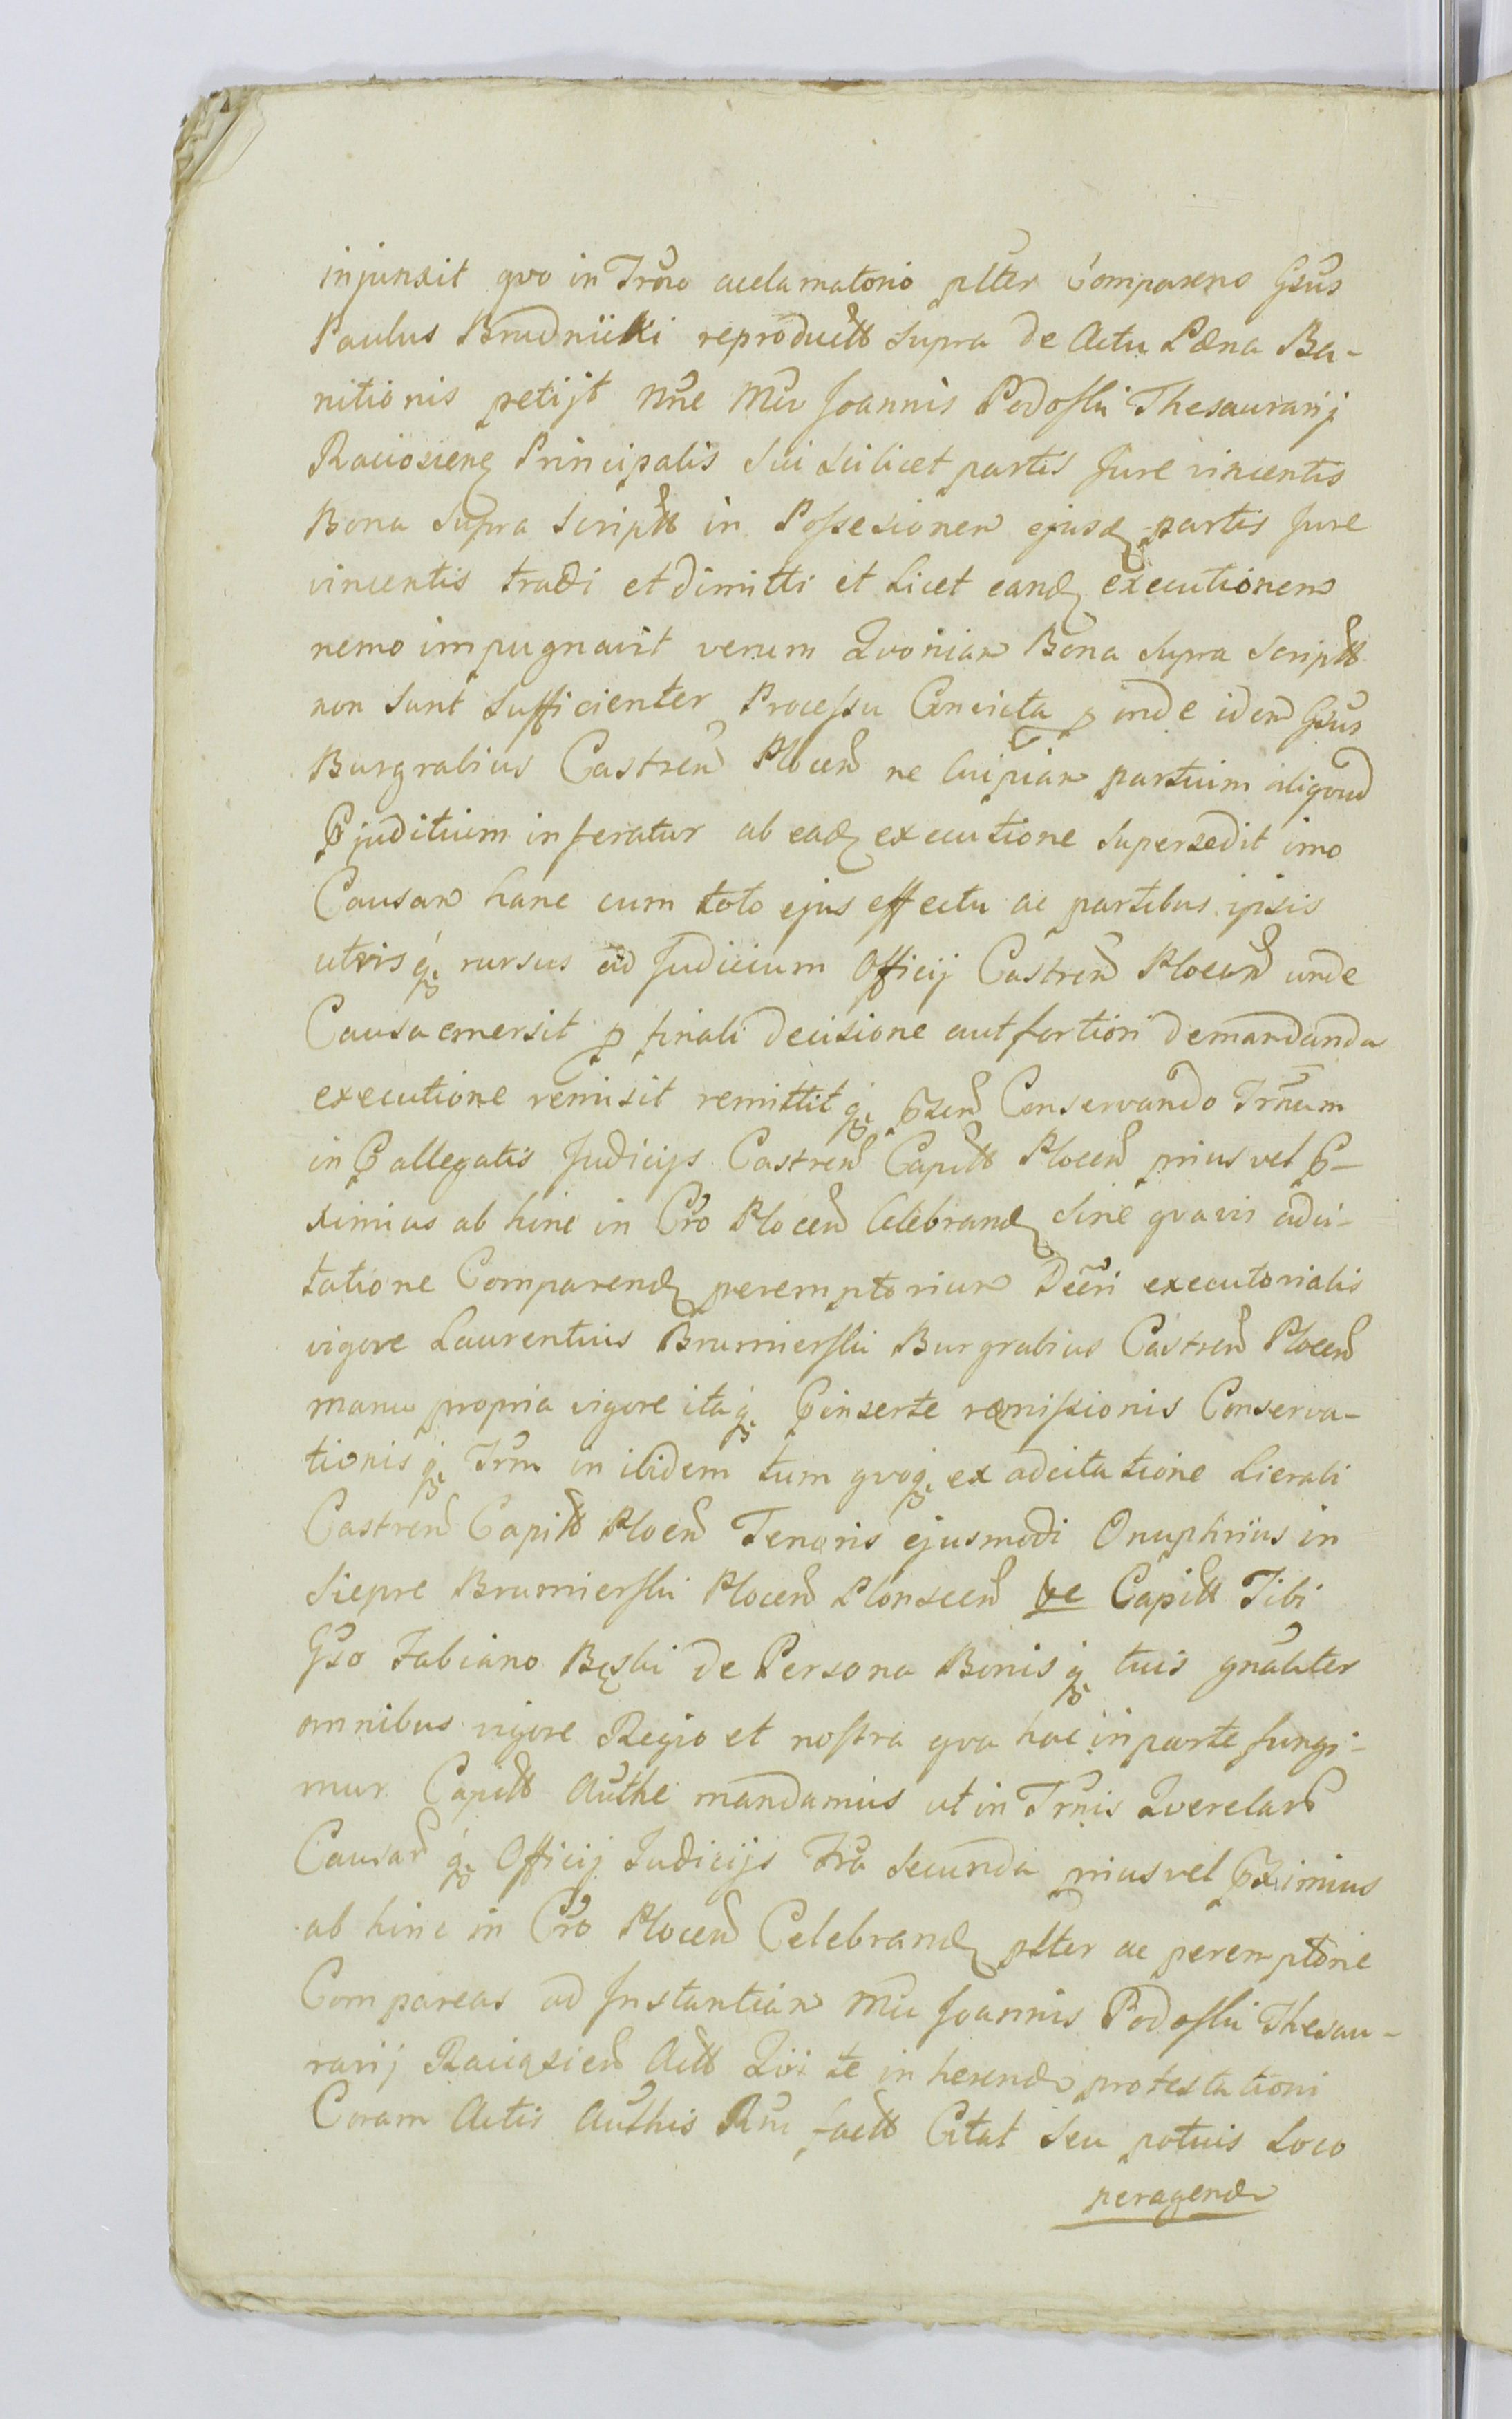 injunxit qvo in Trno acclamatorio pltter Comparens Gsus
Paulus Brudnicki reproductt supra de Actu Pæna Ba-
nitionis petijt nne Mci Joannis Podoski Thesaurarij
Raciązienę Principalis sui scilicet partis Jure vincentis
Bona supra scriptt in Possesionem ejusd partis Jure
vincentis tradi et dimitti et Licet eand executionem
nemo impugnavit verum Qvoniam Bona supra scriptt
non sunt sufficienter Processu Convicta p inde idem Gsus
Burgrabius Castren Plocen ne Cuipiam partium aliqvod
Pjuditium inferatur ab ead executione supersedit imo
Causam hanc cum toto ejus effectu ac partibus ipsis
utrisq rursus ad Judicium Officij Castren Plocen unde
Causa emersit p finali decisione aut fortiori demandanda
executione remisit remittitq psen Conservando Trnum
in Pallegatis Judicijs Castren Capitt Plocen prius vel P-
ximius ab hinc in Cro Plocen Celebrand sine qvavis adci-
tatione Comparend peremptorium Decri executorialis
vigore Laurentius Brumierski Burgrabius Castren Plocen
manu propria vigore itaq Pinserte remissionis Conserva-
tionisq Trni in ibidem tum qvoq ex adcitatione Lierali
Castren Capitt Plocen Tenoris ejusmodi Onuphrius in
Siepre Brumierski Plocen Plonscen ve Capitt Tibi
Gso Fabiano Bęski de Persona Bonisq tuis gnaliter
omnibus vigore Regio et nostra qva hac in parte fungi-
mur Capitt Authe mandamus ut in Trnis Qverelarum
Causarq Officij Judicijs Fra secunda prius vel Pximius
ab hinc in Cro Plocen Celebrand pltter ac peremptorie
Compareas ad Instantiam Mci Joannis Podoski Thesau-
rarij Raciązien Actt Qui te in herend protestationi
Coram Actis Authis Rni factt Citat seu potius Loco
peragend